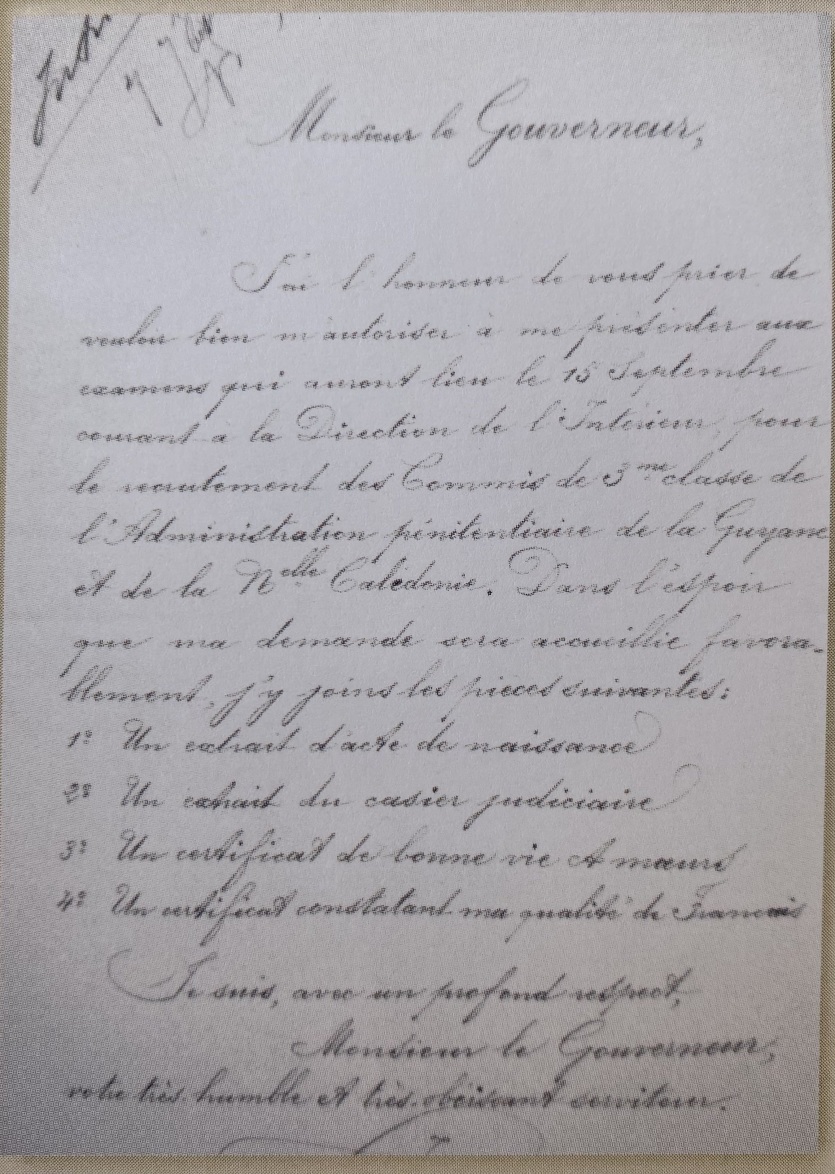 7 7bre
Monsieur le Gouverneur,
J'ai l'honneur de vous prier de
vouloir bien m'autoriser à me présenter aux
examens qui auront lieu le 15 Septembre
courant à la Direction de l'Intérieur, pour
le recrutement des Commis de 3me classe de
l'Administration pénitentiaire de la Guyane
et de la Nelle Calédonie. Dans l'espoir
que ma demande sera accueillie favora-
blement, j'y joins les pièces suivantes:
1º Un extrait d'acte de naissance
2º Un extrait du casier judiciaire
3º Un certificat de bonne vie et mœurs
4º Un certificat constatant ma qualité de Français
Je suis, avec un profond respect,
Monsieur le Gouverneur,
votre très humble et très obéissant serviteur.